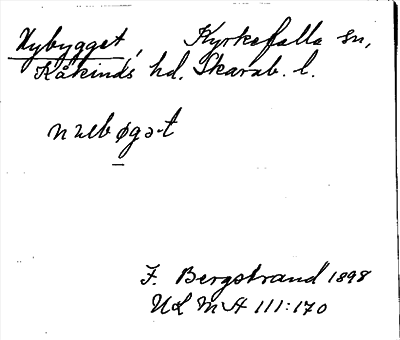 Nybygget, Kyrkefalla sn,
Kåkinds hd. Skarab. l.
nʉbøgə-t
F. Bergstrand 1898
ULMA 111:170